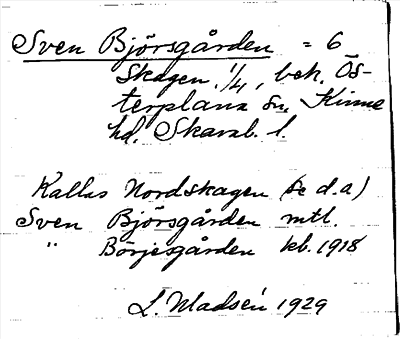 Sven Björsgården = 6
Skagen 1/4, bek. Ös-
terplana sn, Kinne
hd. Skarab. l.
Kallas Nordskagen (se d.a)
Sven Björsgården mtl.
" Börjesgården kb. 1918
L. Madsén 1929